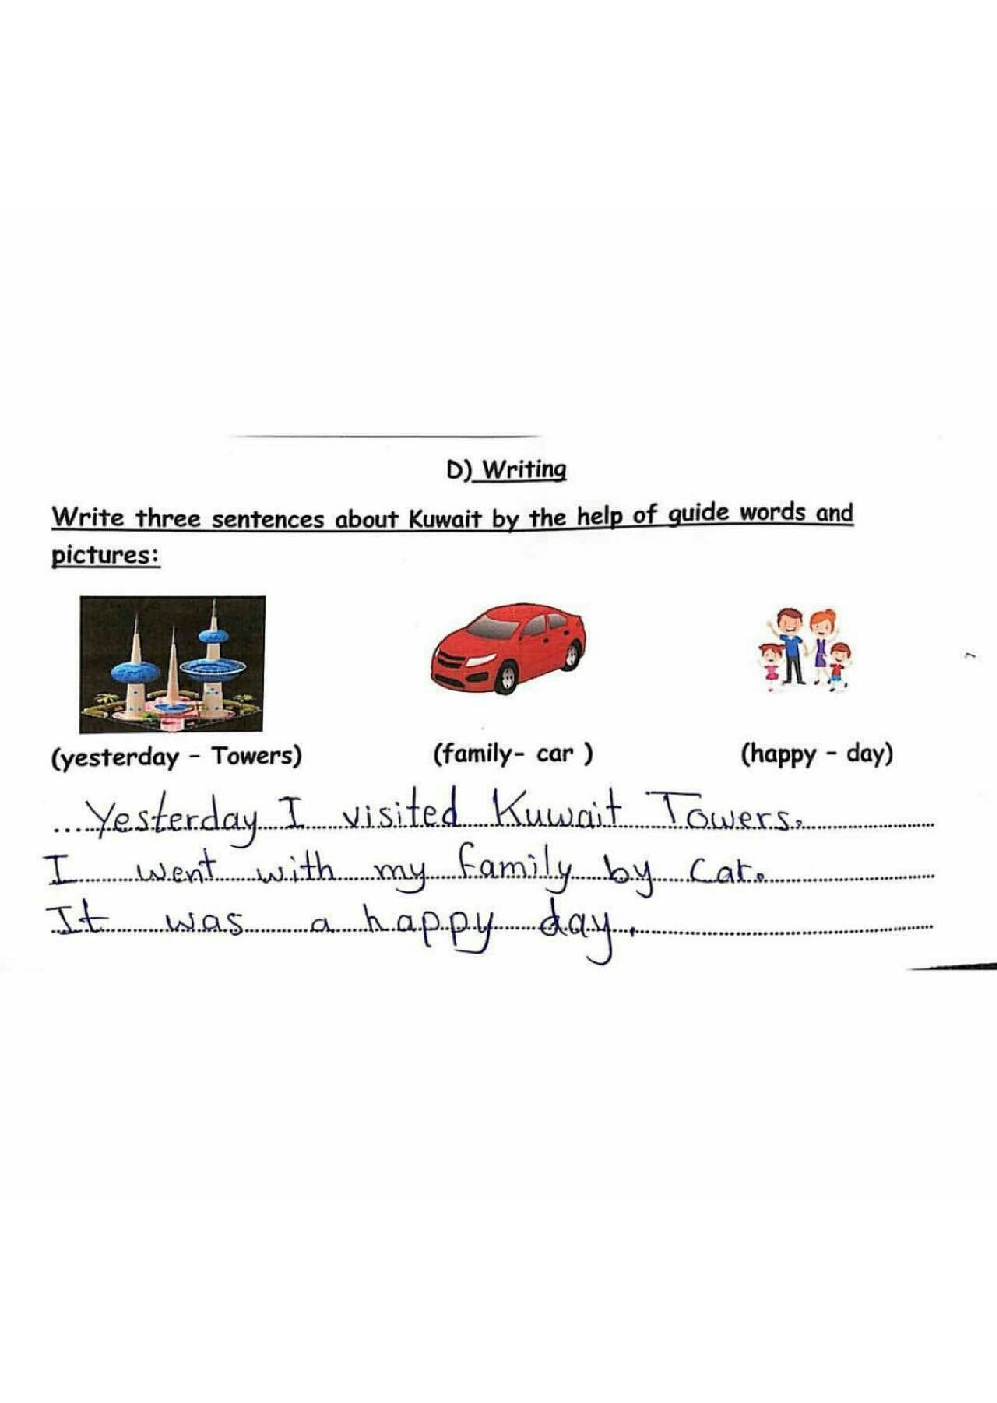 D) Writing
Write three sentences about Kuwait by the help of guide words and
pictures:
(yesterday - Towers) (family- car ) (happy - day)
....Yesterday I visited Kuwait Towers.
I went with my family by car.
It was a happy day.